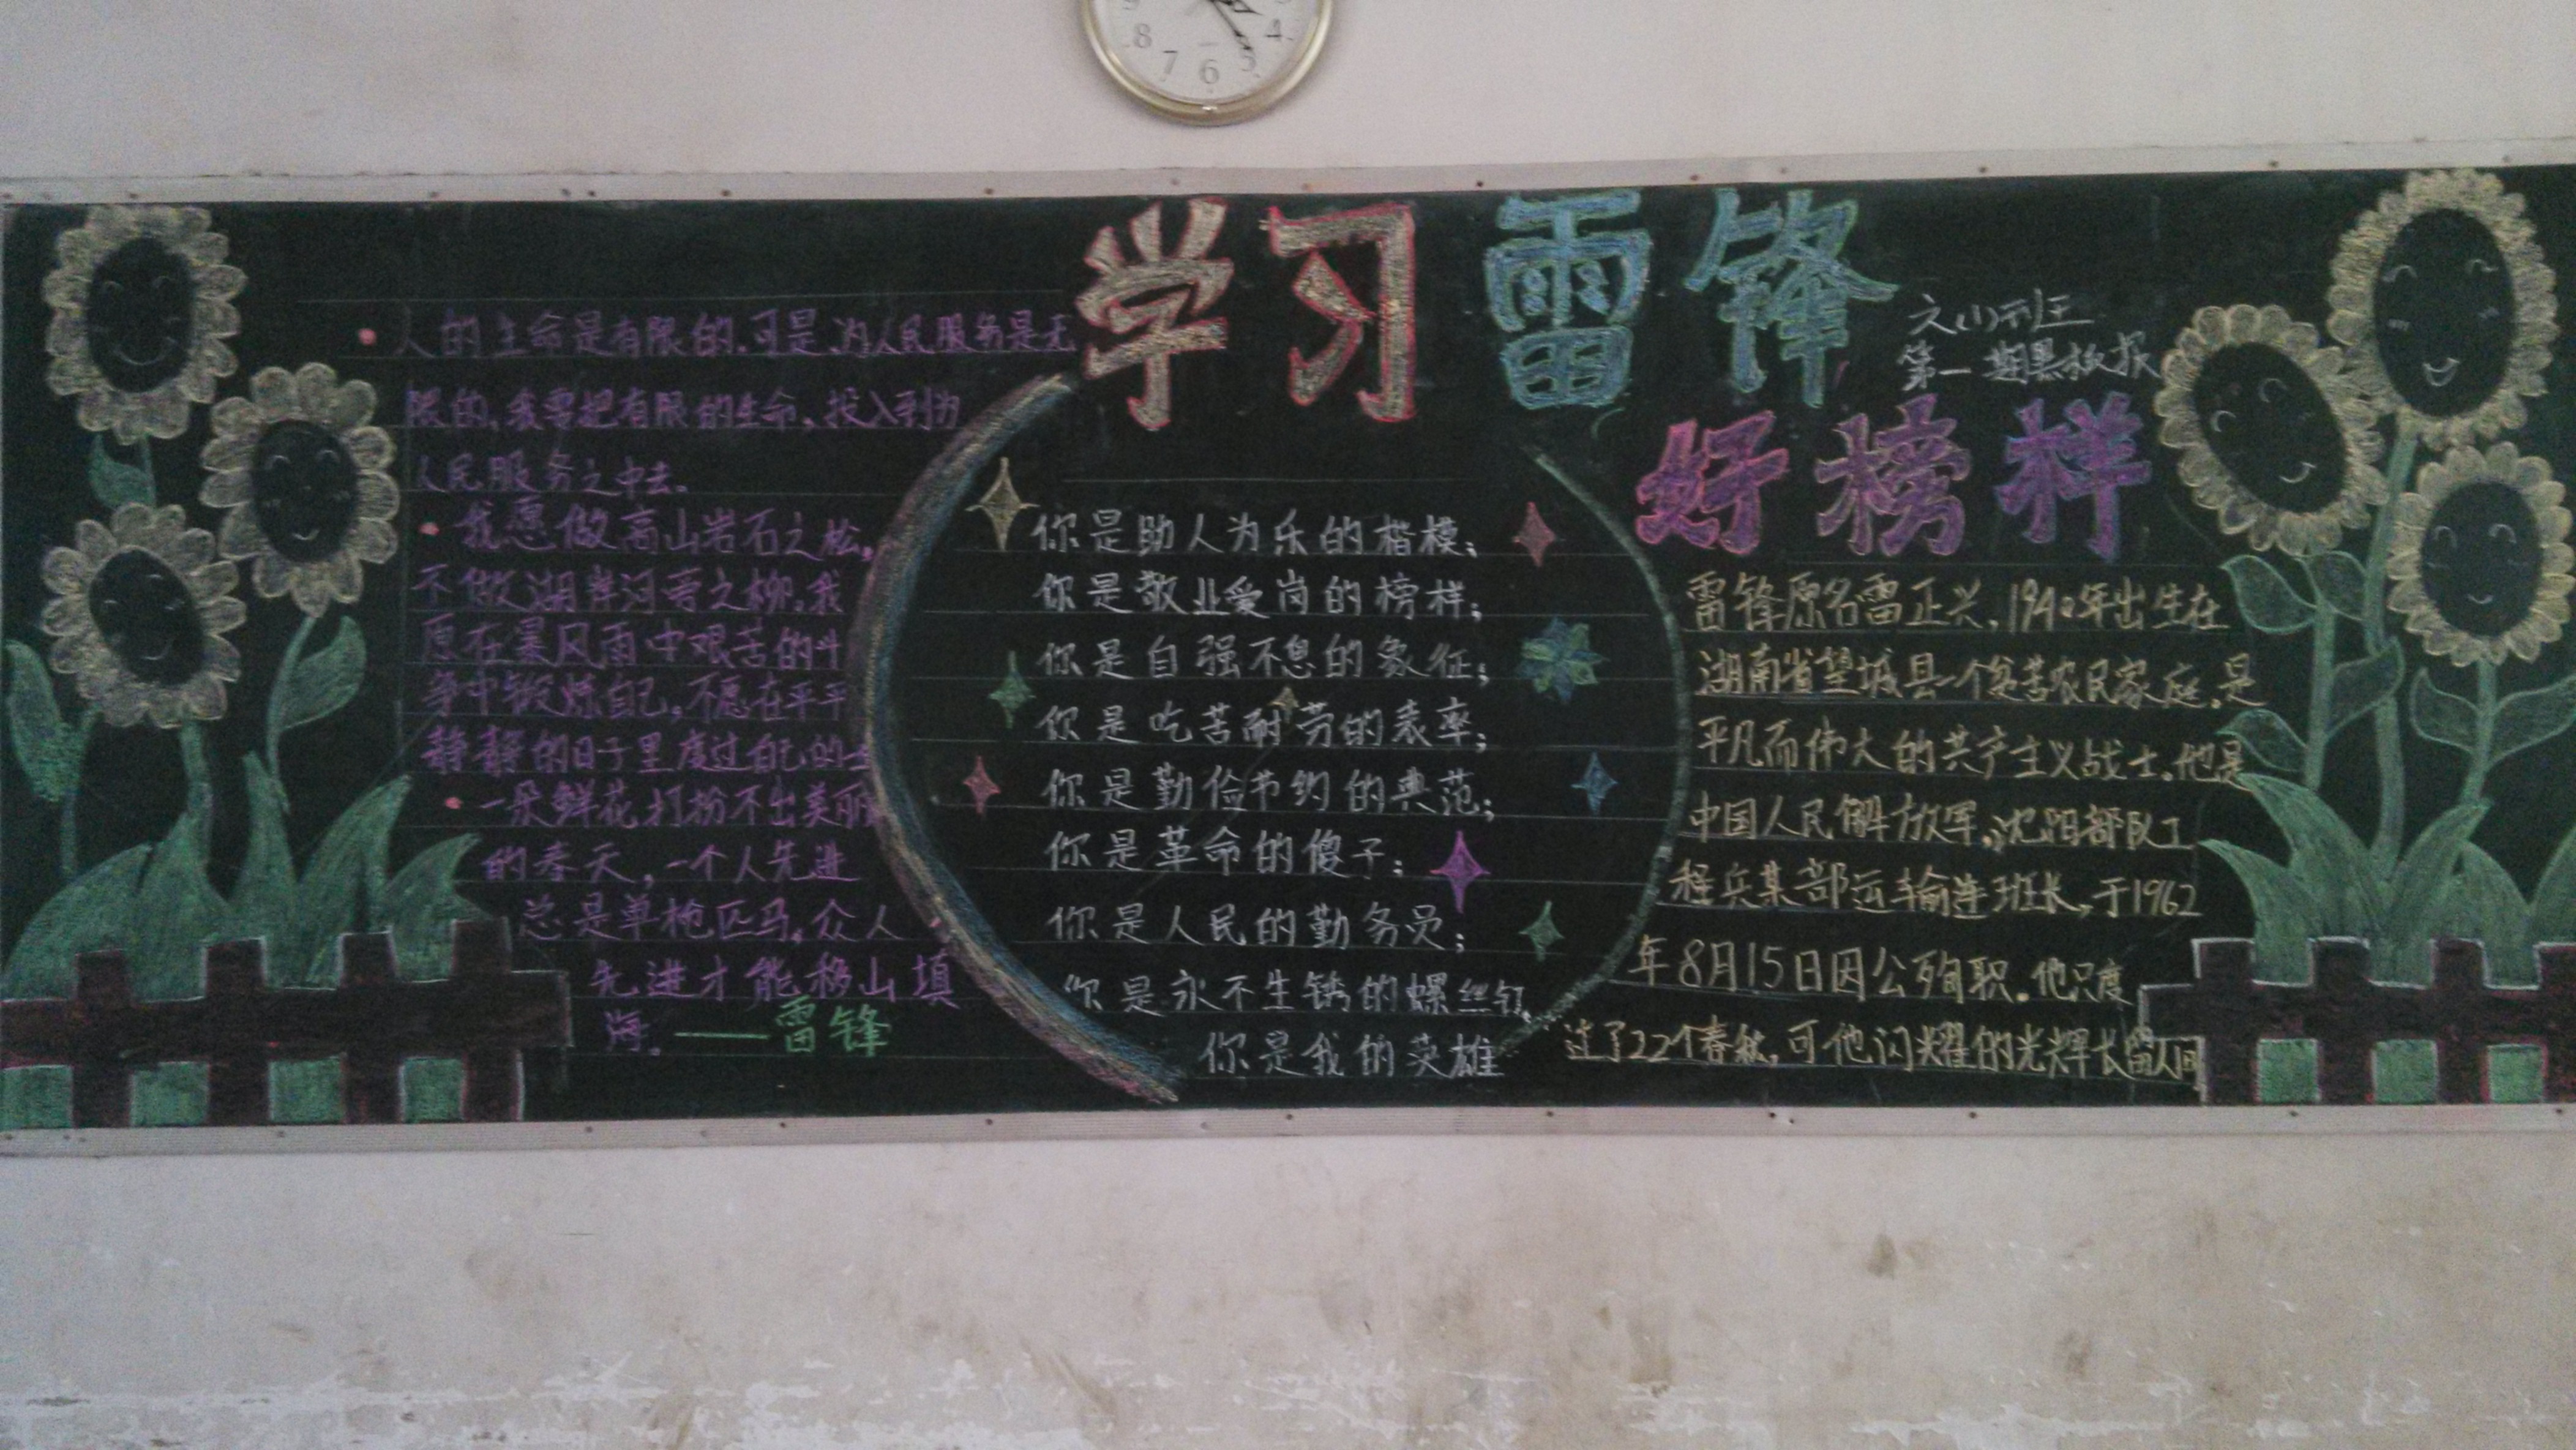 学习雷锋
好榜样
第一期黑板报
人的生命是有限的.可是.为人民服务是无
限的,我要把有限的生命,投入到为
人民服务之中去.
我愿做高山岩石之松,
不做湖岸河旁之柳.我
愿在暴风雨中艰苦的斗
争中锻炼自己,不愿在平平
静静的日子里度过自己的
一朵鲜花打扮不出美丽
的春天,一个人先进
总是单枪匹马,众人
先进才能移山填
海.——雷锋
你是助人为乐的楷模;
你是敬业爱岗的榜样;
你是自强不息的象征;
你是吃苦耐劳的表率;
你是勤俭节约的典范;
你是革命的傻子;
你是人民的勤务员;
你是永不生锈的螺丝钉,
你是我的英雄
雷锋原名雷正兴,1940年出生在
湖南省望城县一个贫苦农民家庭.是
平凡而伟大的共产主义战士.他是
中国人民解放军,沈阳部队工
程兵某部运输连班长,于1962
年8月15日因公殉职.他只度
过了22个春秋,可他闪耀的光辉长留人间
8
7
6
5
4